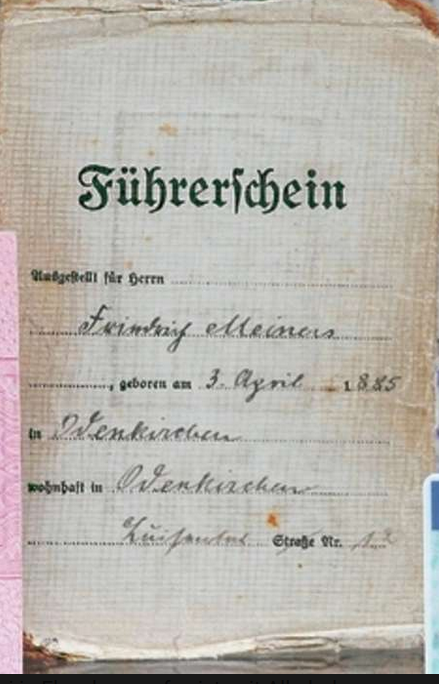 Führerschein
Ausgestellt für Herrn
Friedrich Meiners
, geboren am 3. April 1885
in Odenkirchen
wohnhaft in Odenkirchen
Straße Nr.